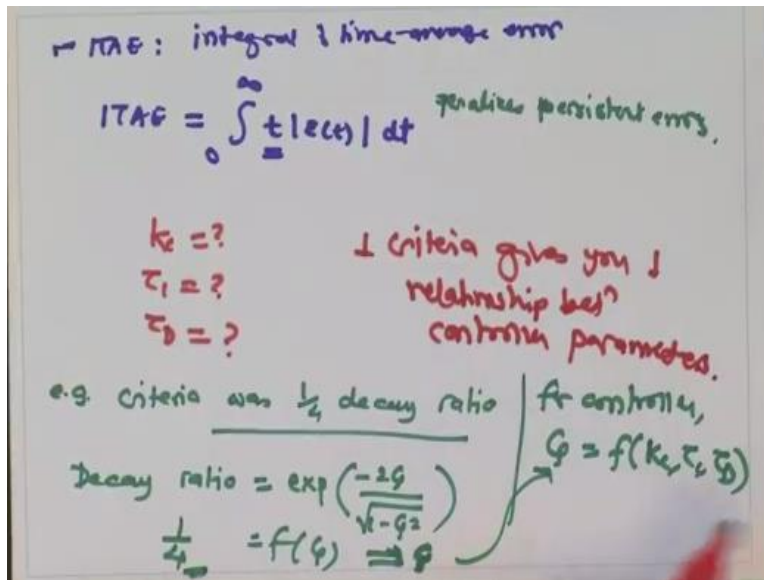 ITAE : integral & time-average error
ITAE = ∫₀^∞ t |ε(t)| dt
penalizes persistent errors.
kc = ?
τI = ?
τD = ?
1 criteria gives you 1
relationship betⁿ
controller parameters.
e.g. criteria was 1/4 decay ratio
Decay ratio = exp(-2ζ/√(1-ζ²))
1/4 = f(ζ) ⇒ ζ
for controller,
ζ = f(kc, τI, τD)